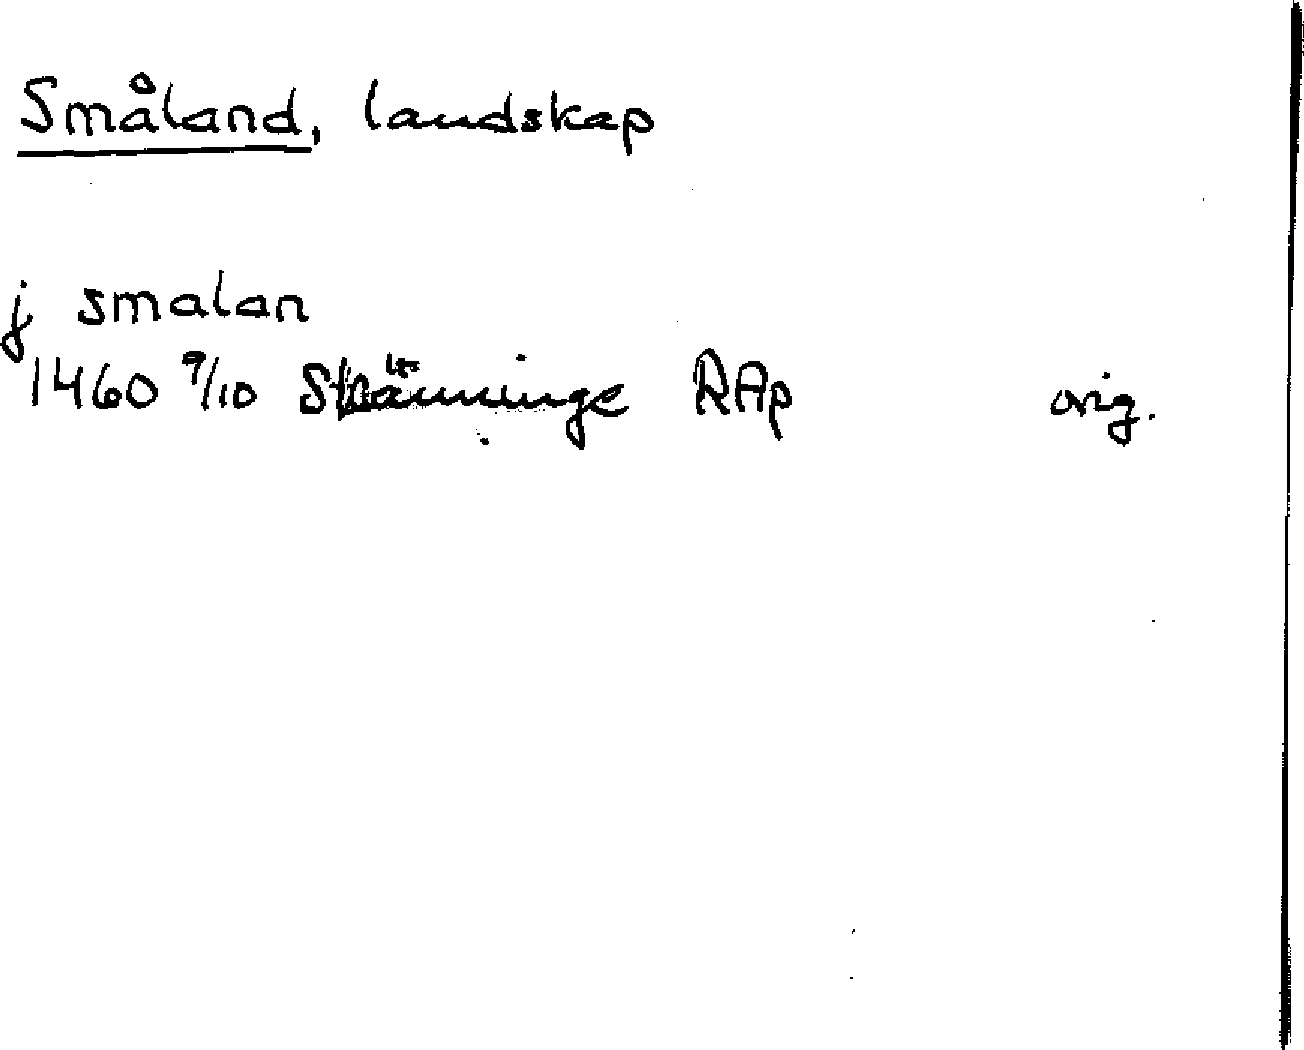 Småland, landskap
j smalan
1460 9/10 Skänninge RAp orig.